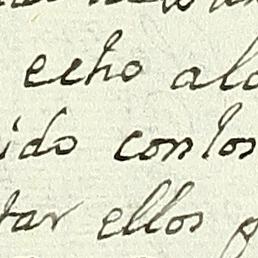 echo alg
ido con los
tar ellos